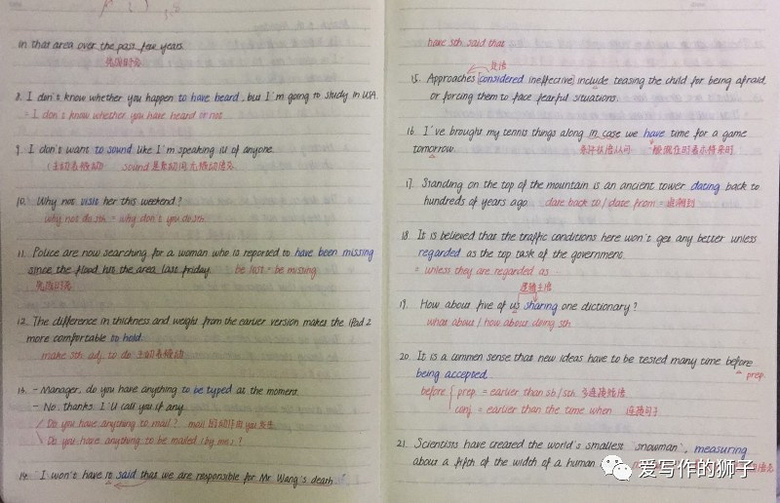 in that area over the past few years.
8. I don't know whether you happen to have heard, but I'm going to study in USA.
= I don't know whether you have heard or not
9. I don't want to sound like I'm speaking ill of anyone.
10. Why not visit her this weekend?
why not do sth = why don't you do sth.
11. Police are now searching for a woman who is reported to have been missing
since the flood hit the area last friday. be lost = be missing
12. The difference in thickness and weight from the earlier version makes the iPad 2
more comfortable to hold.
make sth adj. to do 主动表被动
13. - Manager, do you have anything to be typed at the moment.
- No. thanks I'll call you if any
/ Do you have anything to mail? mail 的动作由you发生
\ Do you have anything to be mailed (by me)?
14. I won't have it said that we are responsible for Mr Wang's death.
have sth said that
定语
15. Approaches considered ineffective include teasing the child for being afraid
or forcing them to face fearful situations.
16. I've brought my tennis things along in case we have time for a game
tomorrow.
17. Standing on the top of the mountain is an ancient tower dating back to
hundreds of years ago. date back to / date from = 追溯到
18. It is believed that the traffic conditions here won't get any better unless
regarded as the top task of the government.
= unless they are regarded as
逻辑主语
19. How about five of us sharing one dictionary?
what about / how about doing sth
20. It is a commen sense that new ideas have to be tested many time before
being accepted. prep.
before { prep. = earlier than sb/sth 多连接短语
conj. = earlier than the time when 连接句子
21. Scientists have created the world's smallest "snowman", measuring
about a fifth of the width of a human
爱写作的狮子